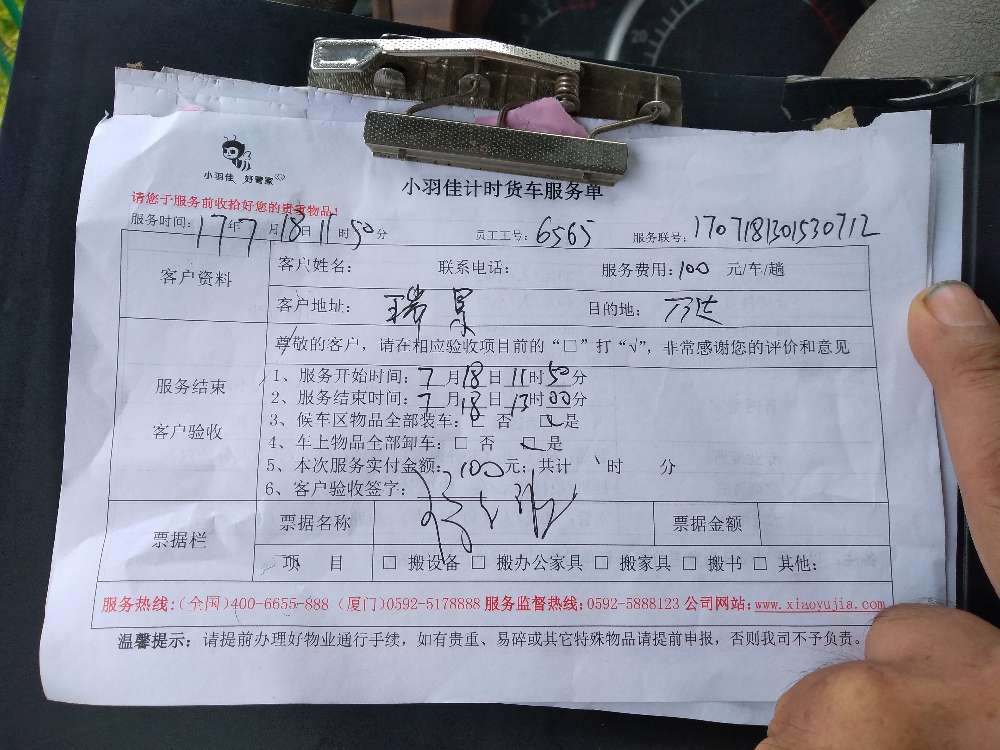 小羽佳 好管家
小羽佳计时货车服务单
请您于服务前收拾好您的贵重物品!
服务时间: 17年7月18日11时50分 员工工号: 6565 服务联号: 1707181301530712
客户资料
客户姓名: 联系电话: 服务费用: 100 元/车/趟
客户地址: 瑞景 目的地: 万达
服务结束
客户验收
尊敬的客户，请在相应验收项目前的“□”打“√”，非常感谢您的评价和意见
1、服务开始时间: 7月18日11时50分
2、服务结束时间: 7月18日13时00分
3、候车区物品全部装车: □ 否 □是
4、车上物品全部卸车: □ 否 □ 是
5、本次服务实付金额: 100元; 共计 时 分
6、客户验收签字:
票据栏
票据名称 票据金额
项 目 □ 搬设备 □ 搬办公家具 □ 搬家具 □ 搬书 □ 其他:
服务热线:(全国)400-6655-888 (厦门)0592-5178888 服务监督热线:0592-5888123 公司网站:www.xiaoyujia.com
温馨提示: 请提前办理好物业通行手续，如有贵重、易碎或其它特殊物品请提前申报，否则我司不予负责。
20